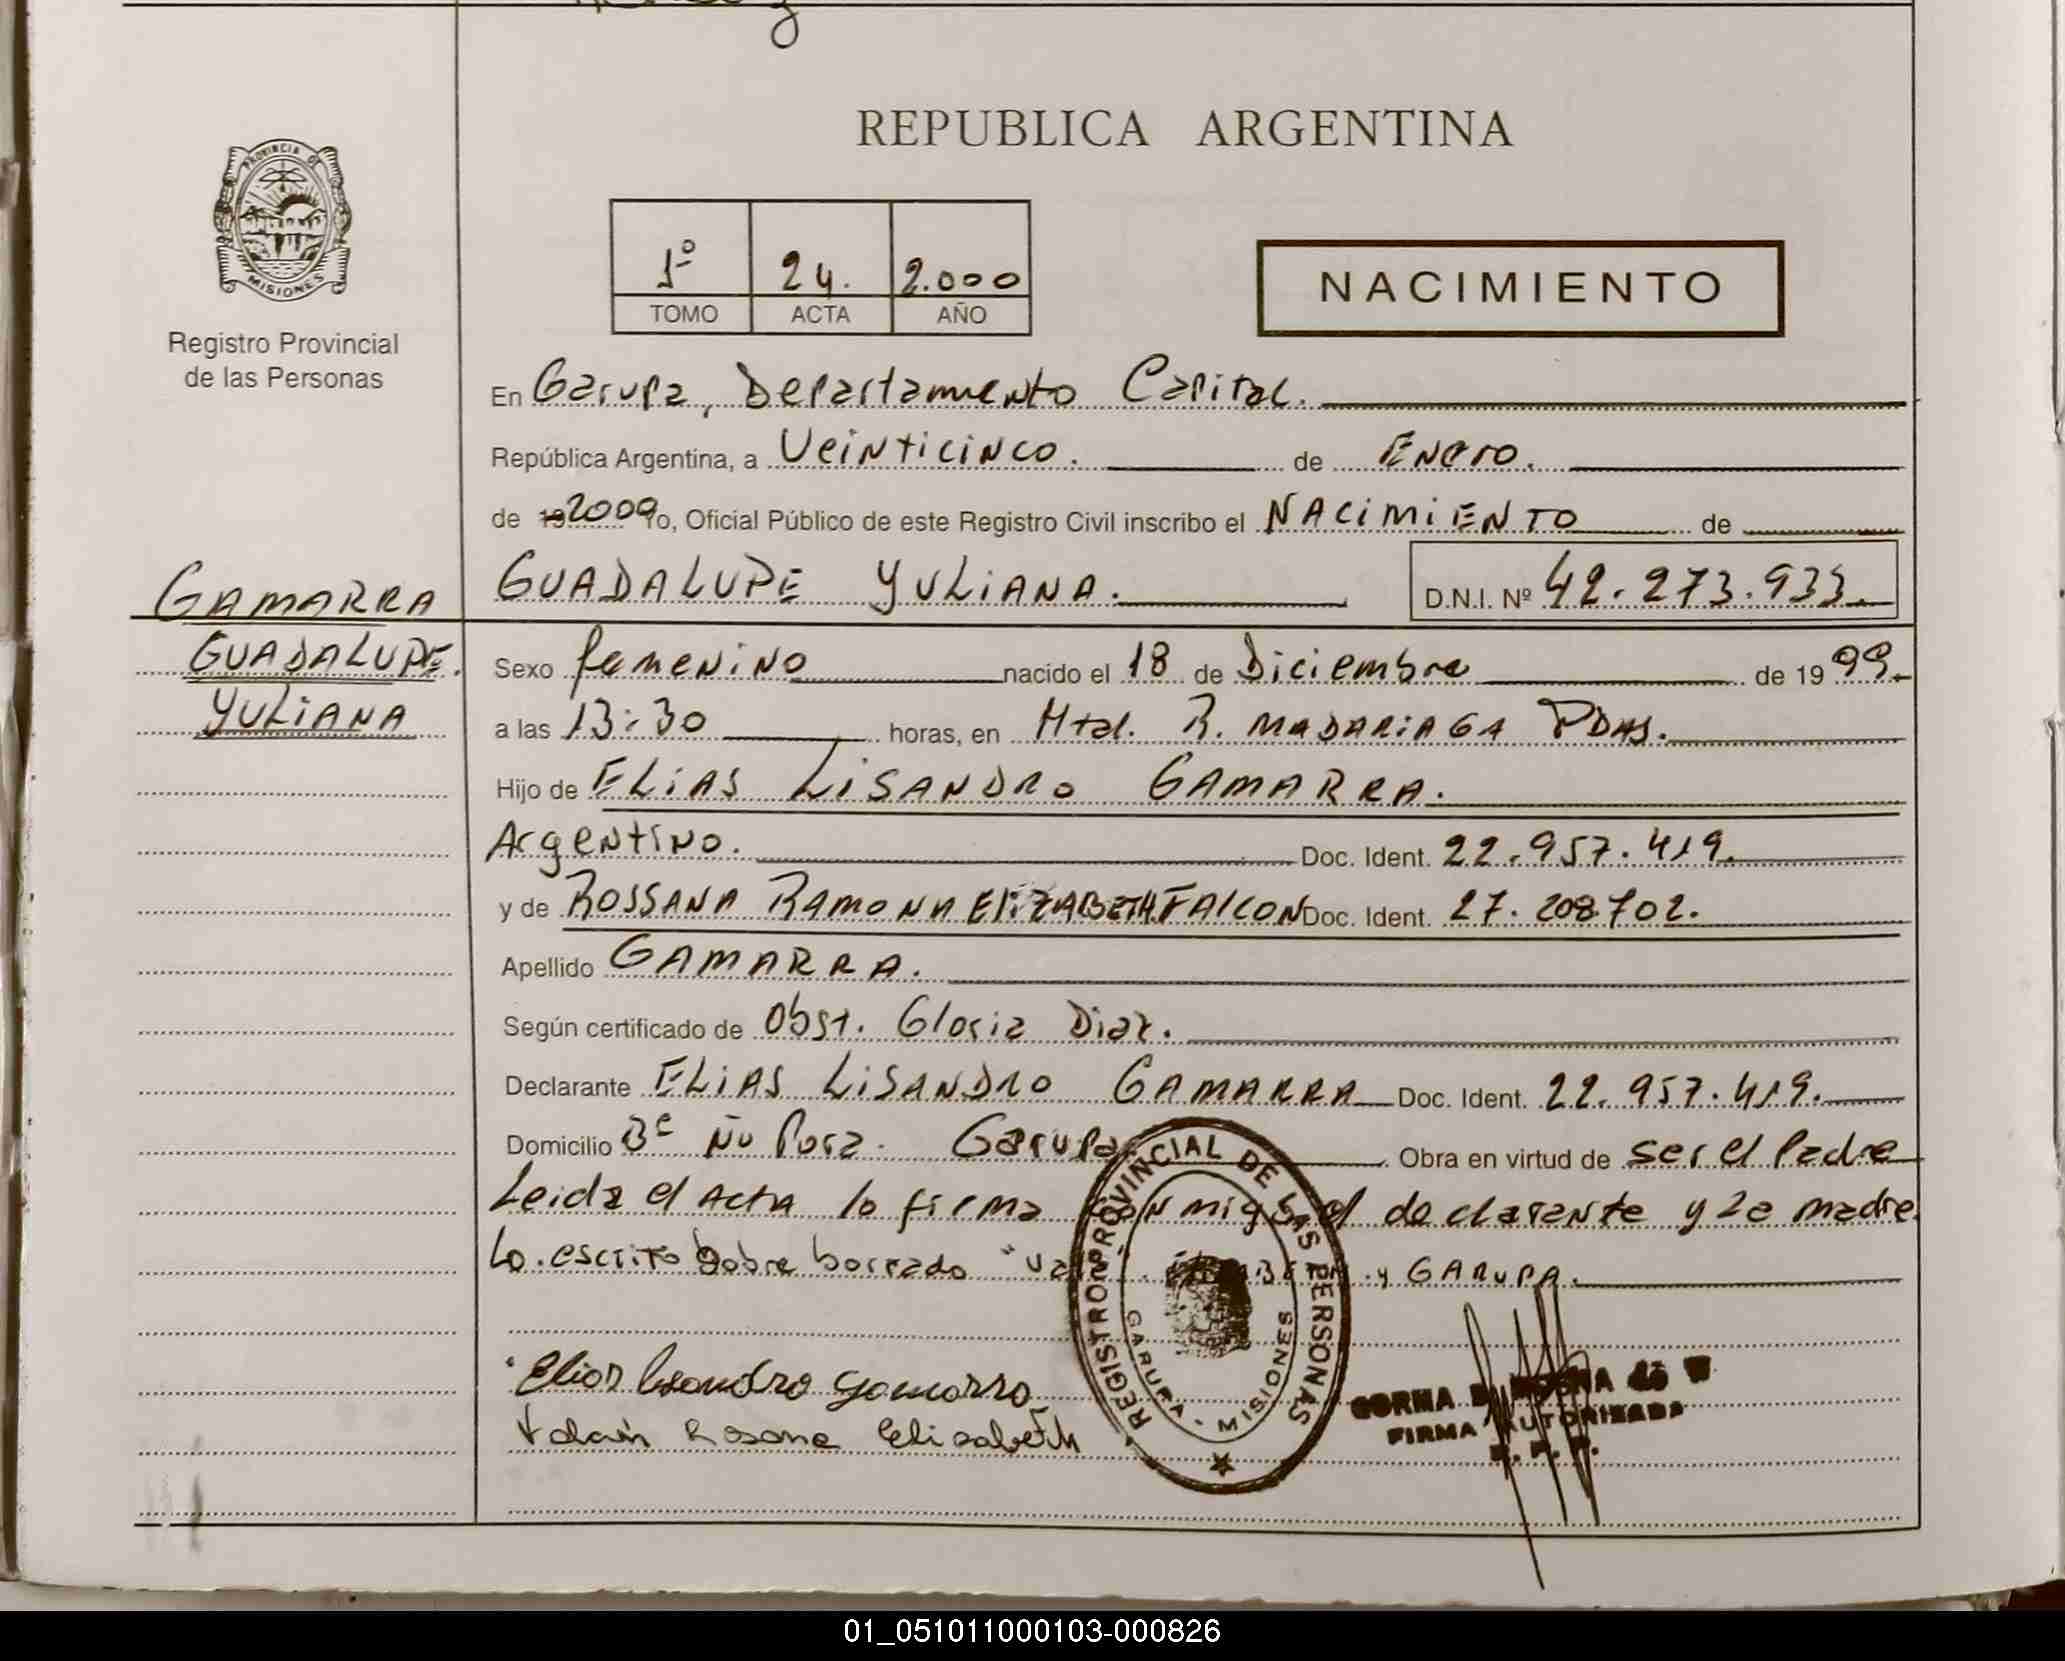 PROVINCIA DE
MISIONES
Registro Provincial
de las Personas
REPUBLICA ARGENTINA
1º 24. 2.000
TOMO ACTA AÑO
NACIMIENTO
En Garupa, Departamento Capital.
República Argentina, a Veinticinco. de Enero.
de 19 2000 Yo, Oficial Público de este Registro Civil inscribo el NACIMIENTO de
GAMARRA
GUADALUPE.
YULIANA
GUADALUPE YULIANA. D.N.I. Nº 42.273.933.
Sexo femenino nacido el 18 de Diciembre de 1999.
a las 13:30 horas, en Htal. R. MADARIAGA PDAS.
Hijo de ELIAS LISANDRO GAMARRA.
Argentino. Doc. Ident. 22.957.419.
y de ROSSANA RAMONA ELIZABETH FALCON Doc. Ident. 27.208.702.
Apellido GAMARRA.
Según certificado de Obst. Gloria Diaz.
Declarante ELIAS LISANDRO GAMARRA Doc. Ident. 22.957.419.
Domicilio Bº Ñu Pora. Garupa Obra en virtud de ser el Padre
Leida el Acta la firma conmigo el declarante y la madre.
Lo escrito sobre borrado "Vale" y GARUPA.
Elias Lisandro Gamarra
Falcón Rosana Elizabeth
REGISTRO PROVINCIAL DE LAS PERSONAS
GARUPA - MISIONES
FIRMA AUTORIZADA
R. P. P.
01_051011000103-000826